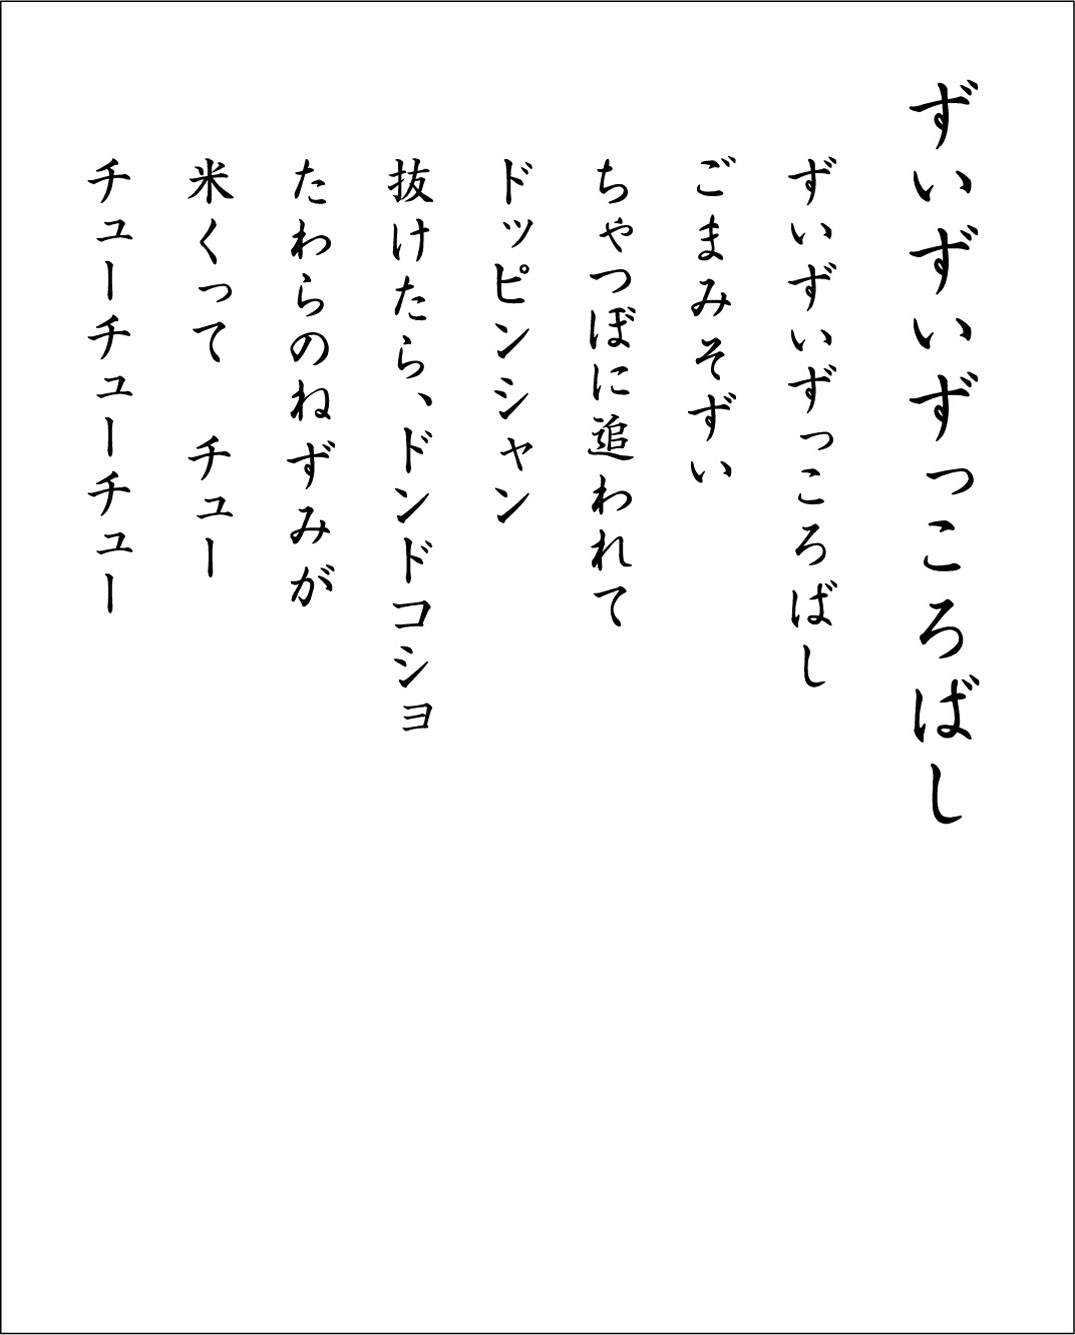 ずいずいずっころばし
ずいずいずっころばし
ごまみそずい
ちゃつぼに追われて
ドッピンシャン
抜けたら、ドンドコショ
たわらのねずみが
米くって　チュー
チューチューチュー